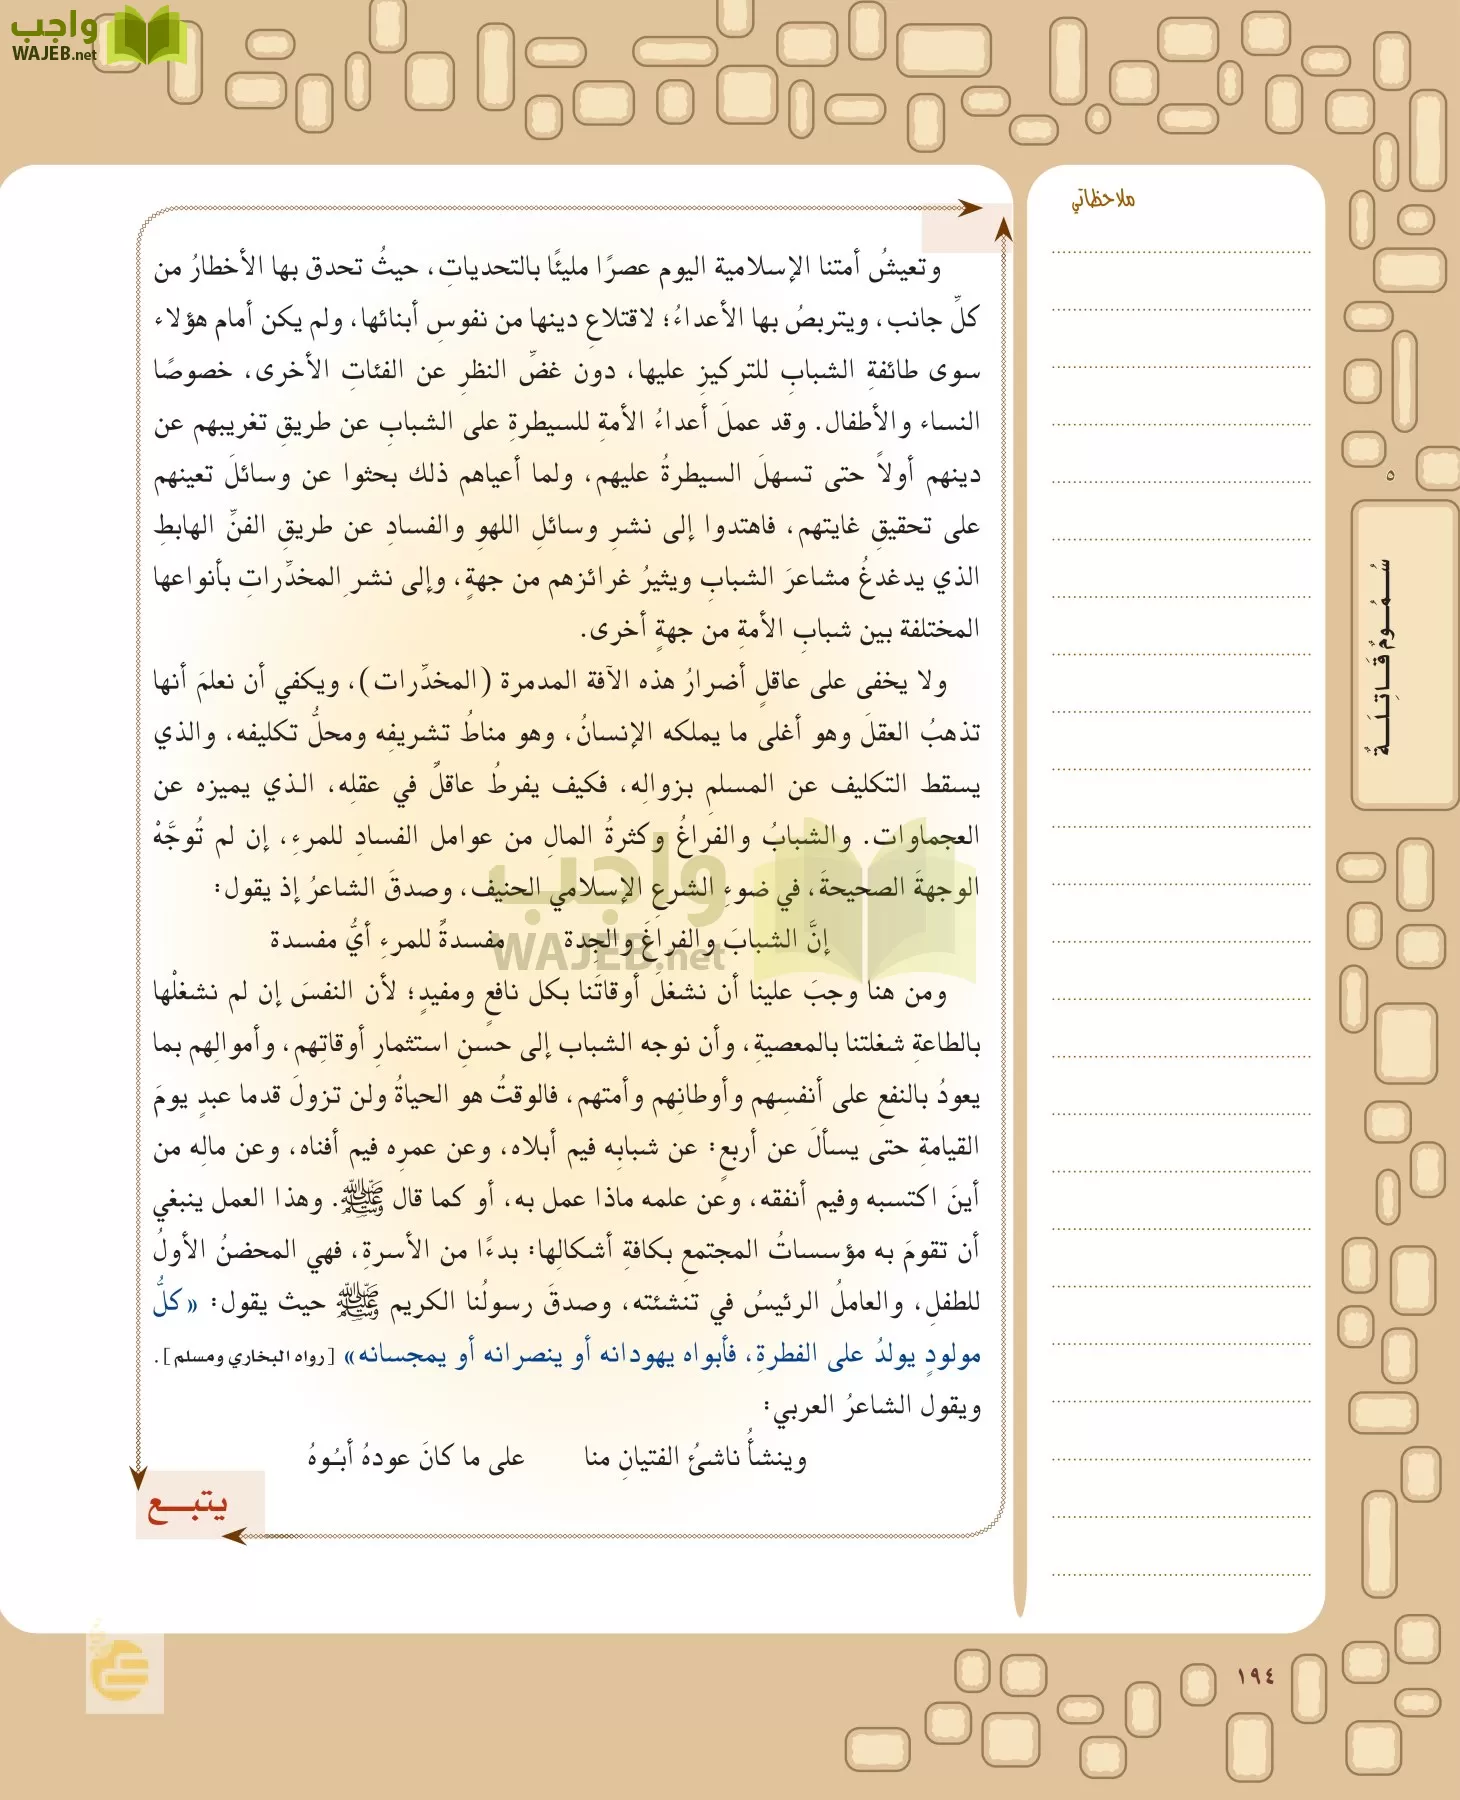 واجب
WAJEB.net
ملاحظاتي
وتعيشُ أمتنا الإسلامية اليوم عصرًا مليئًا بالتحدياتِ، حيثُ تحدق بها الأخطارُ من
كلِّ جانب، ويتربصُ بها الأعداءُ؛ لاقتلاعِ دينها من نفوسِ أبنائها، ولم يكن أمام هؤلاء
سوى طائفةِ الشبابِ للتركيزِ عليها، دون غضِّ النظرِ عن الفئاتِ الأخرى، خصوصًا
النساء والأطفال. وقد عملَ أعداءُ الأمةِ للسيطرةِ على الشبابِ عن طريقِ تغريبهم عن
دينهم أولاً حتى تسهلَ السيطرةُ عليهم، ولما أعياهم ذلك بحثوا عن وسائلَ تعينهم
على تحقيقِ غايتهم، فاهتدوا إلى نشرِ وسائلِ اللهوِ والفسادِ عن طريقِ الفنِّ الهابطِ
الذي يدغدغُ مشاعرَ الشبابِ ويثيرُ غرائزهم من جهةٍ، وإلى نشرِ المخدِّراتِ بأنواعها
المختلفة بين شبابِ الأمةِ من جهةٍ أخرى.
ولا يخفى على عاقلٍ أضرارُ هذه الآفة المدمرة (المخدِّرات)، ويكفي أن نعلمَ أنها
تذهبُ العقلَ وهو أغلى ما يملكه الإنسانُ، وهو مناطُ تشريفِه ومحلُّ تكليفه، والذي
يسقط التكليف عن المسلمِ بزوالِه، فكيف يفرطُ عاقلٌ في عقلِه، الذي يميزه عن
العجماوات. والشبابُ والفراغُ وكثرةُ المالِ من عوامل الفسادِ للمرءِ، إن لم تُوجَّهْ
الوجهةَ الصحيحةَ، في ضوءِ الشرعِ الإسلامي الحنيف، وصدقَ الشاعرُ إذ يقول:
إنَّ الشبابَ والفراغَ والجِدة مفسدةٌ للمرءِ أيُّ مفسدة
ومن هنا وجبَ علينا أن نشغلَ أوقاتَنا بكل نافعٍ ومفيدٍ؛ لأن النفسَ إن لم نشغلْها
بالطاعةِ شغلتنا بالمعصيةِ، وأن نوجه الشباب إلى حسنِ استثمارِ أوقاتِهم، وأموالِهم بما
يعودُ بالنفعِ على أنفسِهم وأوطانِهم وأمتهم، فالوقتُ هو الحياةُ ولن تزولَ قدما عبدٍ يومَ
القيامةِ حتى يسألَ عن أربعٍ: عن شبابِه فيم أبلاه، وعن عمرِه فيم أفناه، وعن مالِه من
أينَ اكتسبه وفيم أنفقه، وعن علمه ماذا عمل به، أو كما قال ﷺ. وهذا العمل ينبغي
أن تقومَ به مؤسساتُ المجتمعِ بكافةِ أشكالِها: بدءًا من الأسرةِ، فهي المحضنُ الأولُ
للطفلِ، والعاملُ الرئيسُ في تنشئته، وصدقَ رسولُنا الكريم ﷺ حيث يقول: «كلُّ
مولودٍ يولدُ على الفطرةِ، فأبواه يهودانه أو ينصرانه أو يمجسانه» [رواه البخاري ومسلم].
ويقول الشاعرُ العربي:
وينشأُ ناشئُ الفتيانِ منا على ما كانَ عودهُ أبُوهُ
يتبـــع
٥
سُـمُـومٌ قَـاتِـلَـةٌ
واجب
WAJEB.net
١٩٤